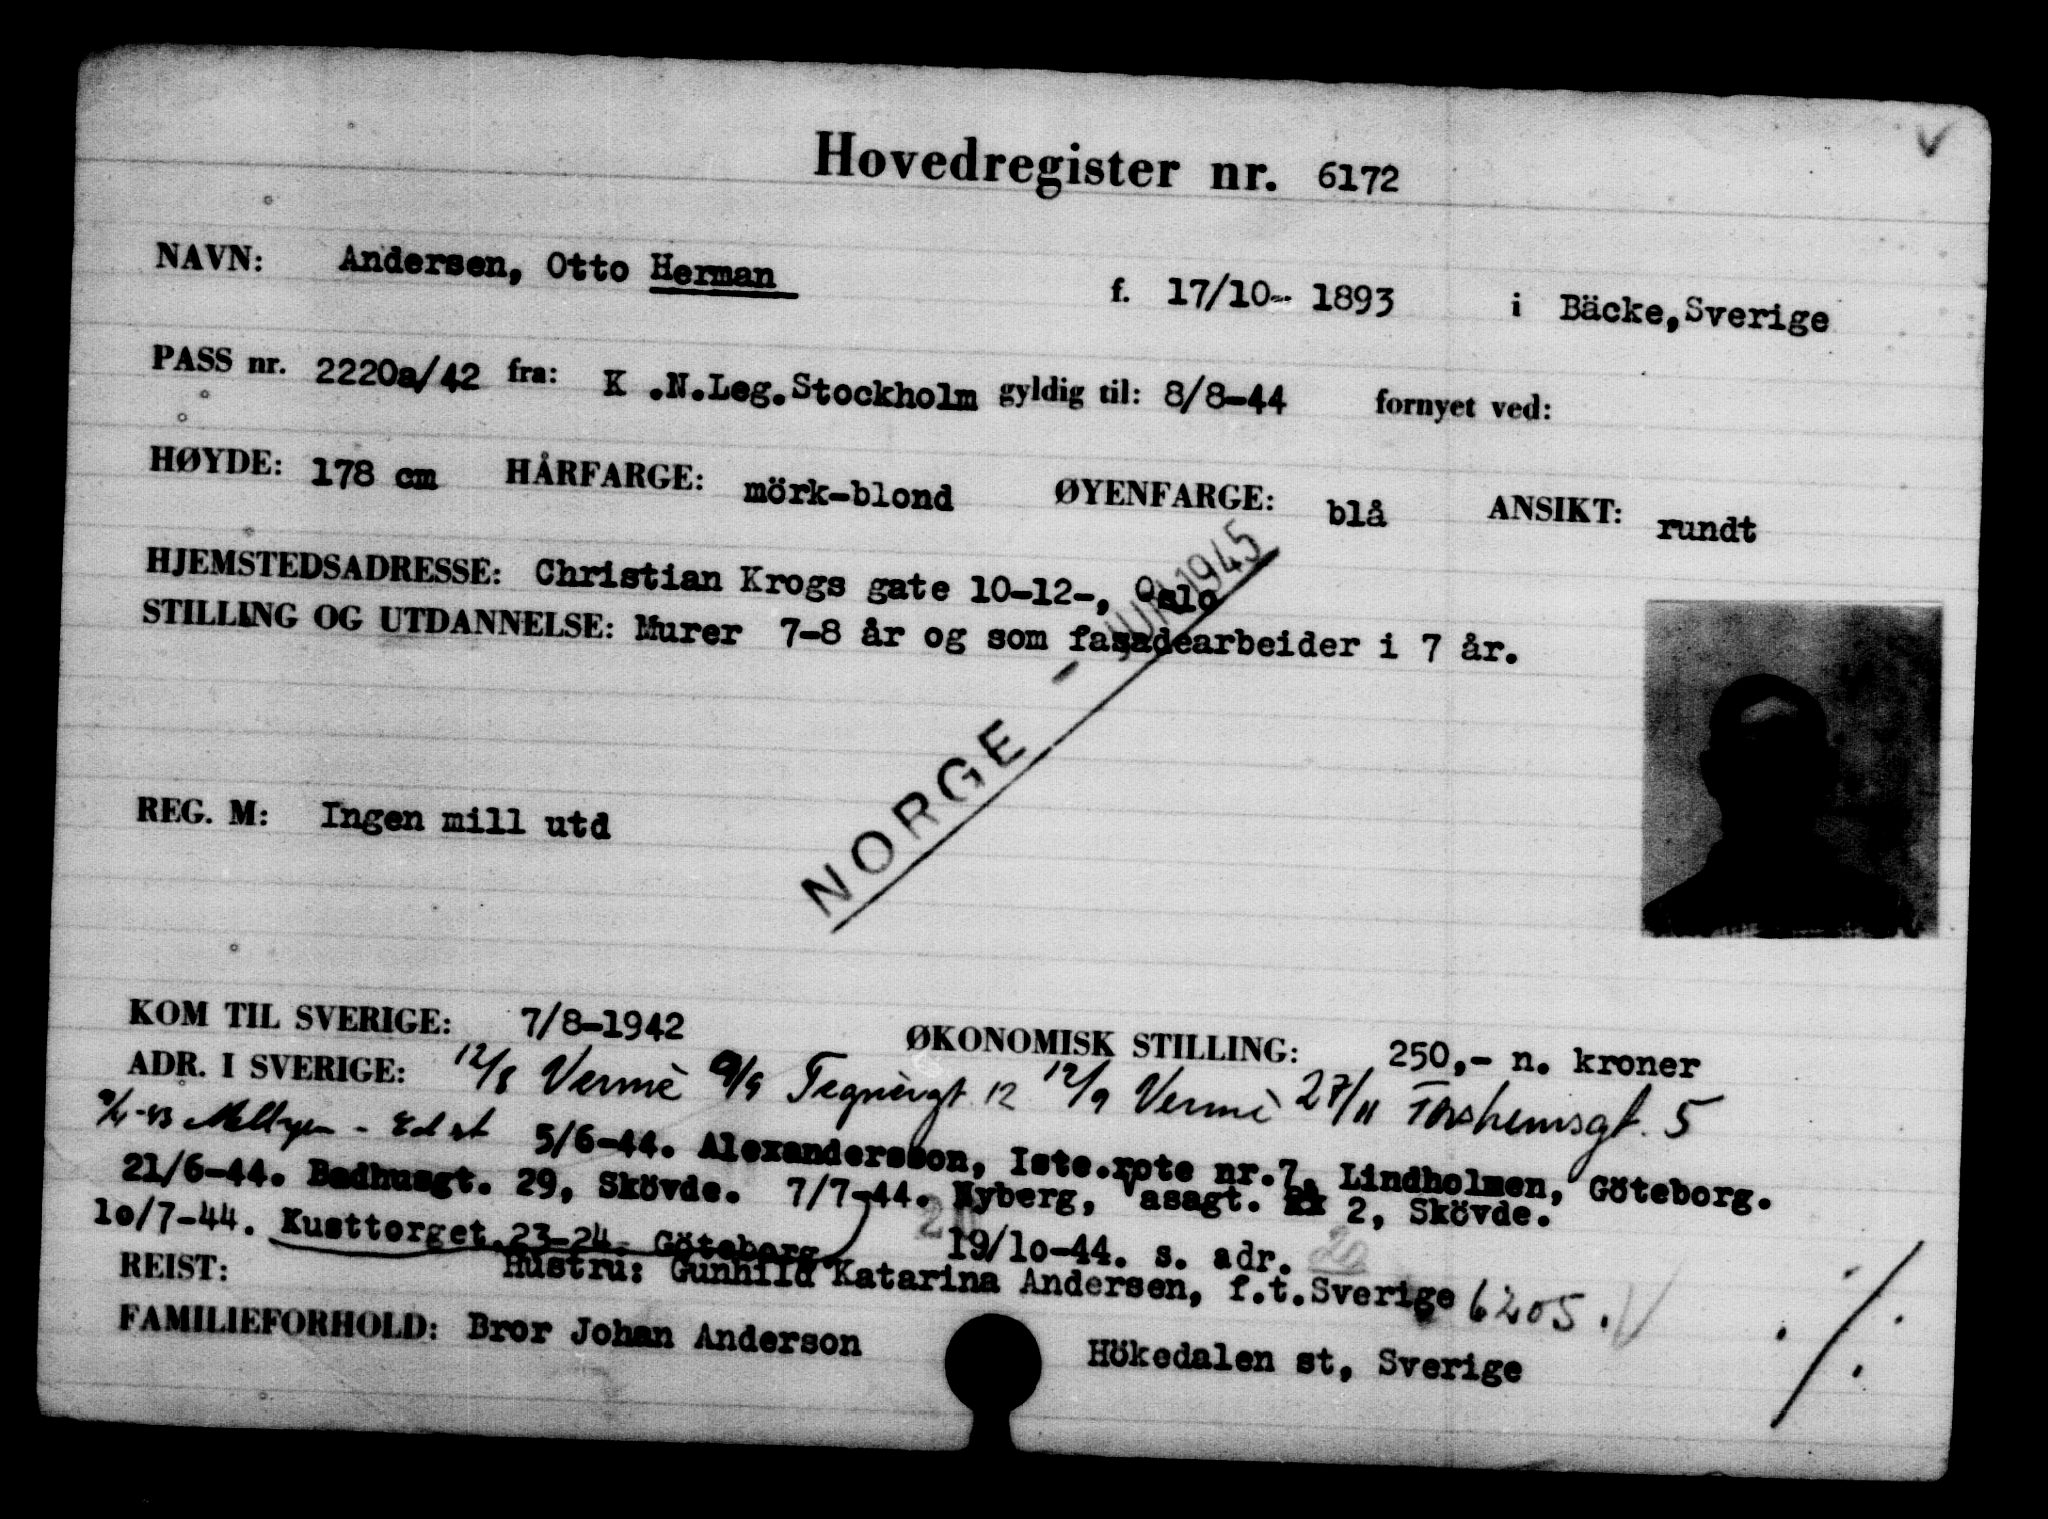 Hovedregister nr. 6172
NAVN: Andersen, Otto Herman f. 17/10- 1893 i Bäcke, Sverige
PASS nr. 2220a/42 fra: K .N.Leg.Stockholm gyldig til: 8/8-44 fornyet ved:
HØYDE: 178 cm HÅRFARGE: mörk-blond ØYENFARGE: blå ANSIKT: rundt
HJEMSTEDSADRESSE: Christian Krogs gate 10-12-, Oslo
STILLING OG UTDANNELSE: Murer 7-8 år og som fasadearbeider i 7 år.
NORGE - JUNI 1945
REG. M: Ingen mill utd
KOM TIL SVERIGE: 7/8-1942 ØKONOMISK STILLING: 250,- n. kroner
ADR. I SVERIGE: 12/8 Vermé 9/9 Tegnérgt 12 12/9 Vermé 27/11 Torshemsgt. 5
5/6-44. Alexandersson, Iste.rote nr.7, Lindholmen, Göteborg.
21/6-44. Badhusgt. 29, Skövde. 7/7-44. Nyberg, Vasagt. 2, Skövde.
lo/7-44. Kusttorget 23-24. Göteborg 19/lo-44. s. adr. 20
REIST: Hustru: Gunhild Katarina Andersen, f.t.Sverige 6205.
FAMILIEFORHOLD: Bror Johan Anderson Hökedalen st, Sverige